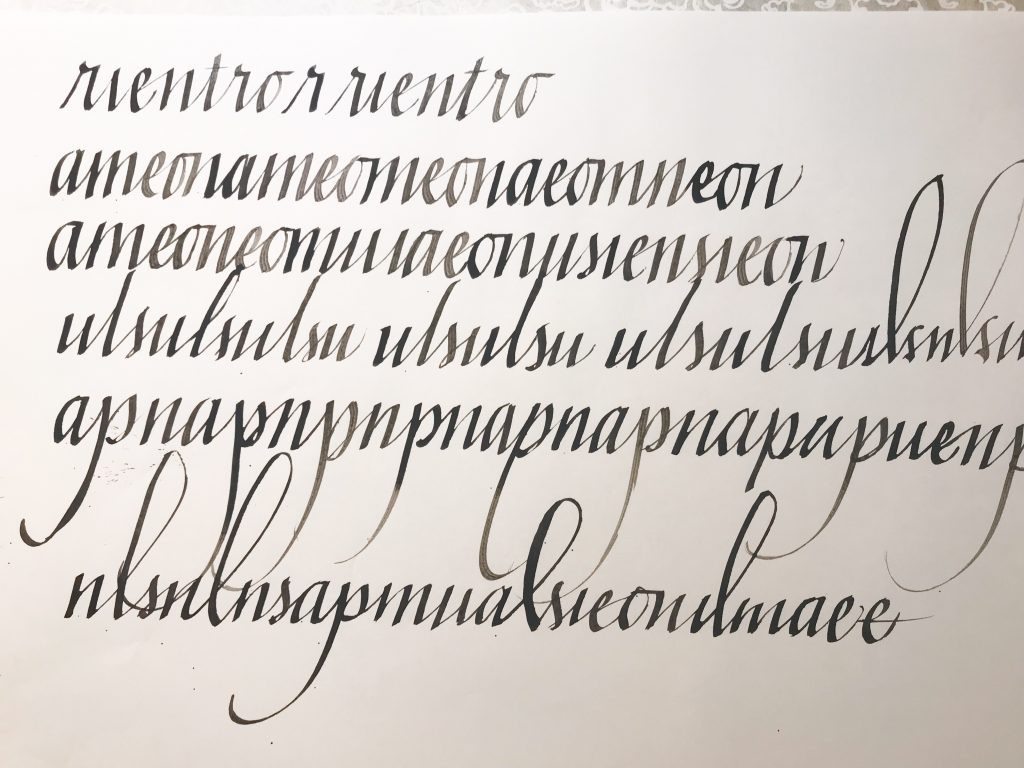 rientro r rientro
ameonameomeonaeomneon
ameoneomuuaeonusiensieon
ulsulsulsu ulsulsu ulsulsuulsulsu
apnapnpnpnapnapnapapuenp
nlsnlnsapmualsieondmaee